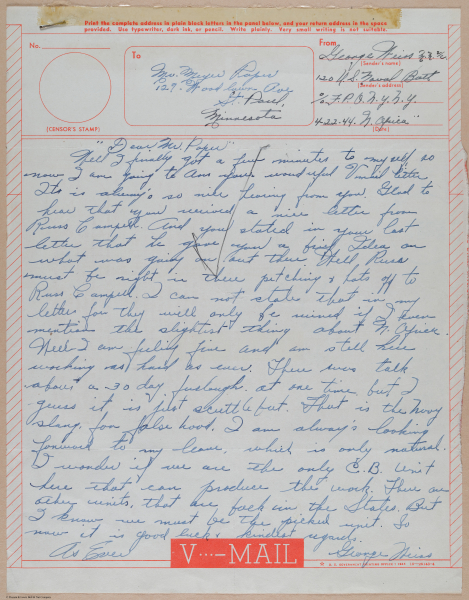 Print the complete address in plain block letters in the panel below, and your return address in the space
provided. Use typewriter, dark ink, or pencil. Write plainly. Very small writing is not suitable.
No.
(CENSOR'S STAMP)
To
Mr. Meyer Paper
129 Ave
St. Paul,
Minnesota
From
George Weiss
(Sender's name)
120 U.S. Naval Batt
(Sender's address)
% F.P.O. N.Y. N.Y.
4-22-44. N. Africa"
(Date)
"Dear, Mr. Paper"
Well I finally got a few minutes to myself so
now I am going to ans your wonderful Vmail letter
Its is always so nice hearing from you. Glad to
hear that you received a nice letter from
Russ Campell. And you stated in your last
letter that he gave you a brief Idea on
what was going out there. Well Russ
must be right in there pitching & hats off to
Russ Campell. I can not state that in my
letter for they will only be ruined if I even
mention the slightest thing about N. Africa.
Well I am feeling fine and am still here
working as hard as ever. There was talk
about a 30 day furlought at one time, but I
guess it is just scuttle but. That is the Navy
slang, for false hood. I am always looking
forward to my leave, which is only natural.
I wonder if we are the only C.B. Unit
here that can produce the work. There are
other units, that are back in the States. But
I know we must be the picked unit. So
now it is good luck & kindest regards.
As Ever
George Weiss
V···-MAIL